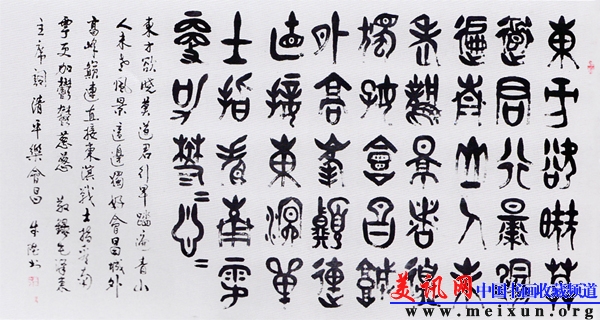 東方欲曉莫
道君行早踏
遍青山人未
老風景這邊
獨好會昌城
外高峰顛連
直接東溟戰
士指看南粵
更加鬱=葱=
東方欲曉莫道君行早踏遍青山
人未老風景這邊獨好會昌城外
高峰顛連直接東溟戰士指看南
粵更加鬱鬱葱葱 敬錄毛澤東
主席詞清平樂會昌
美讯网 中国书画收藏频道
www.meixun.org